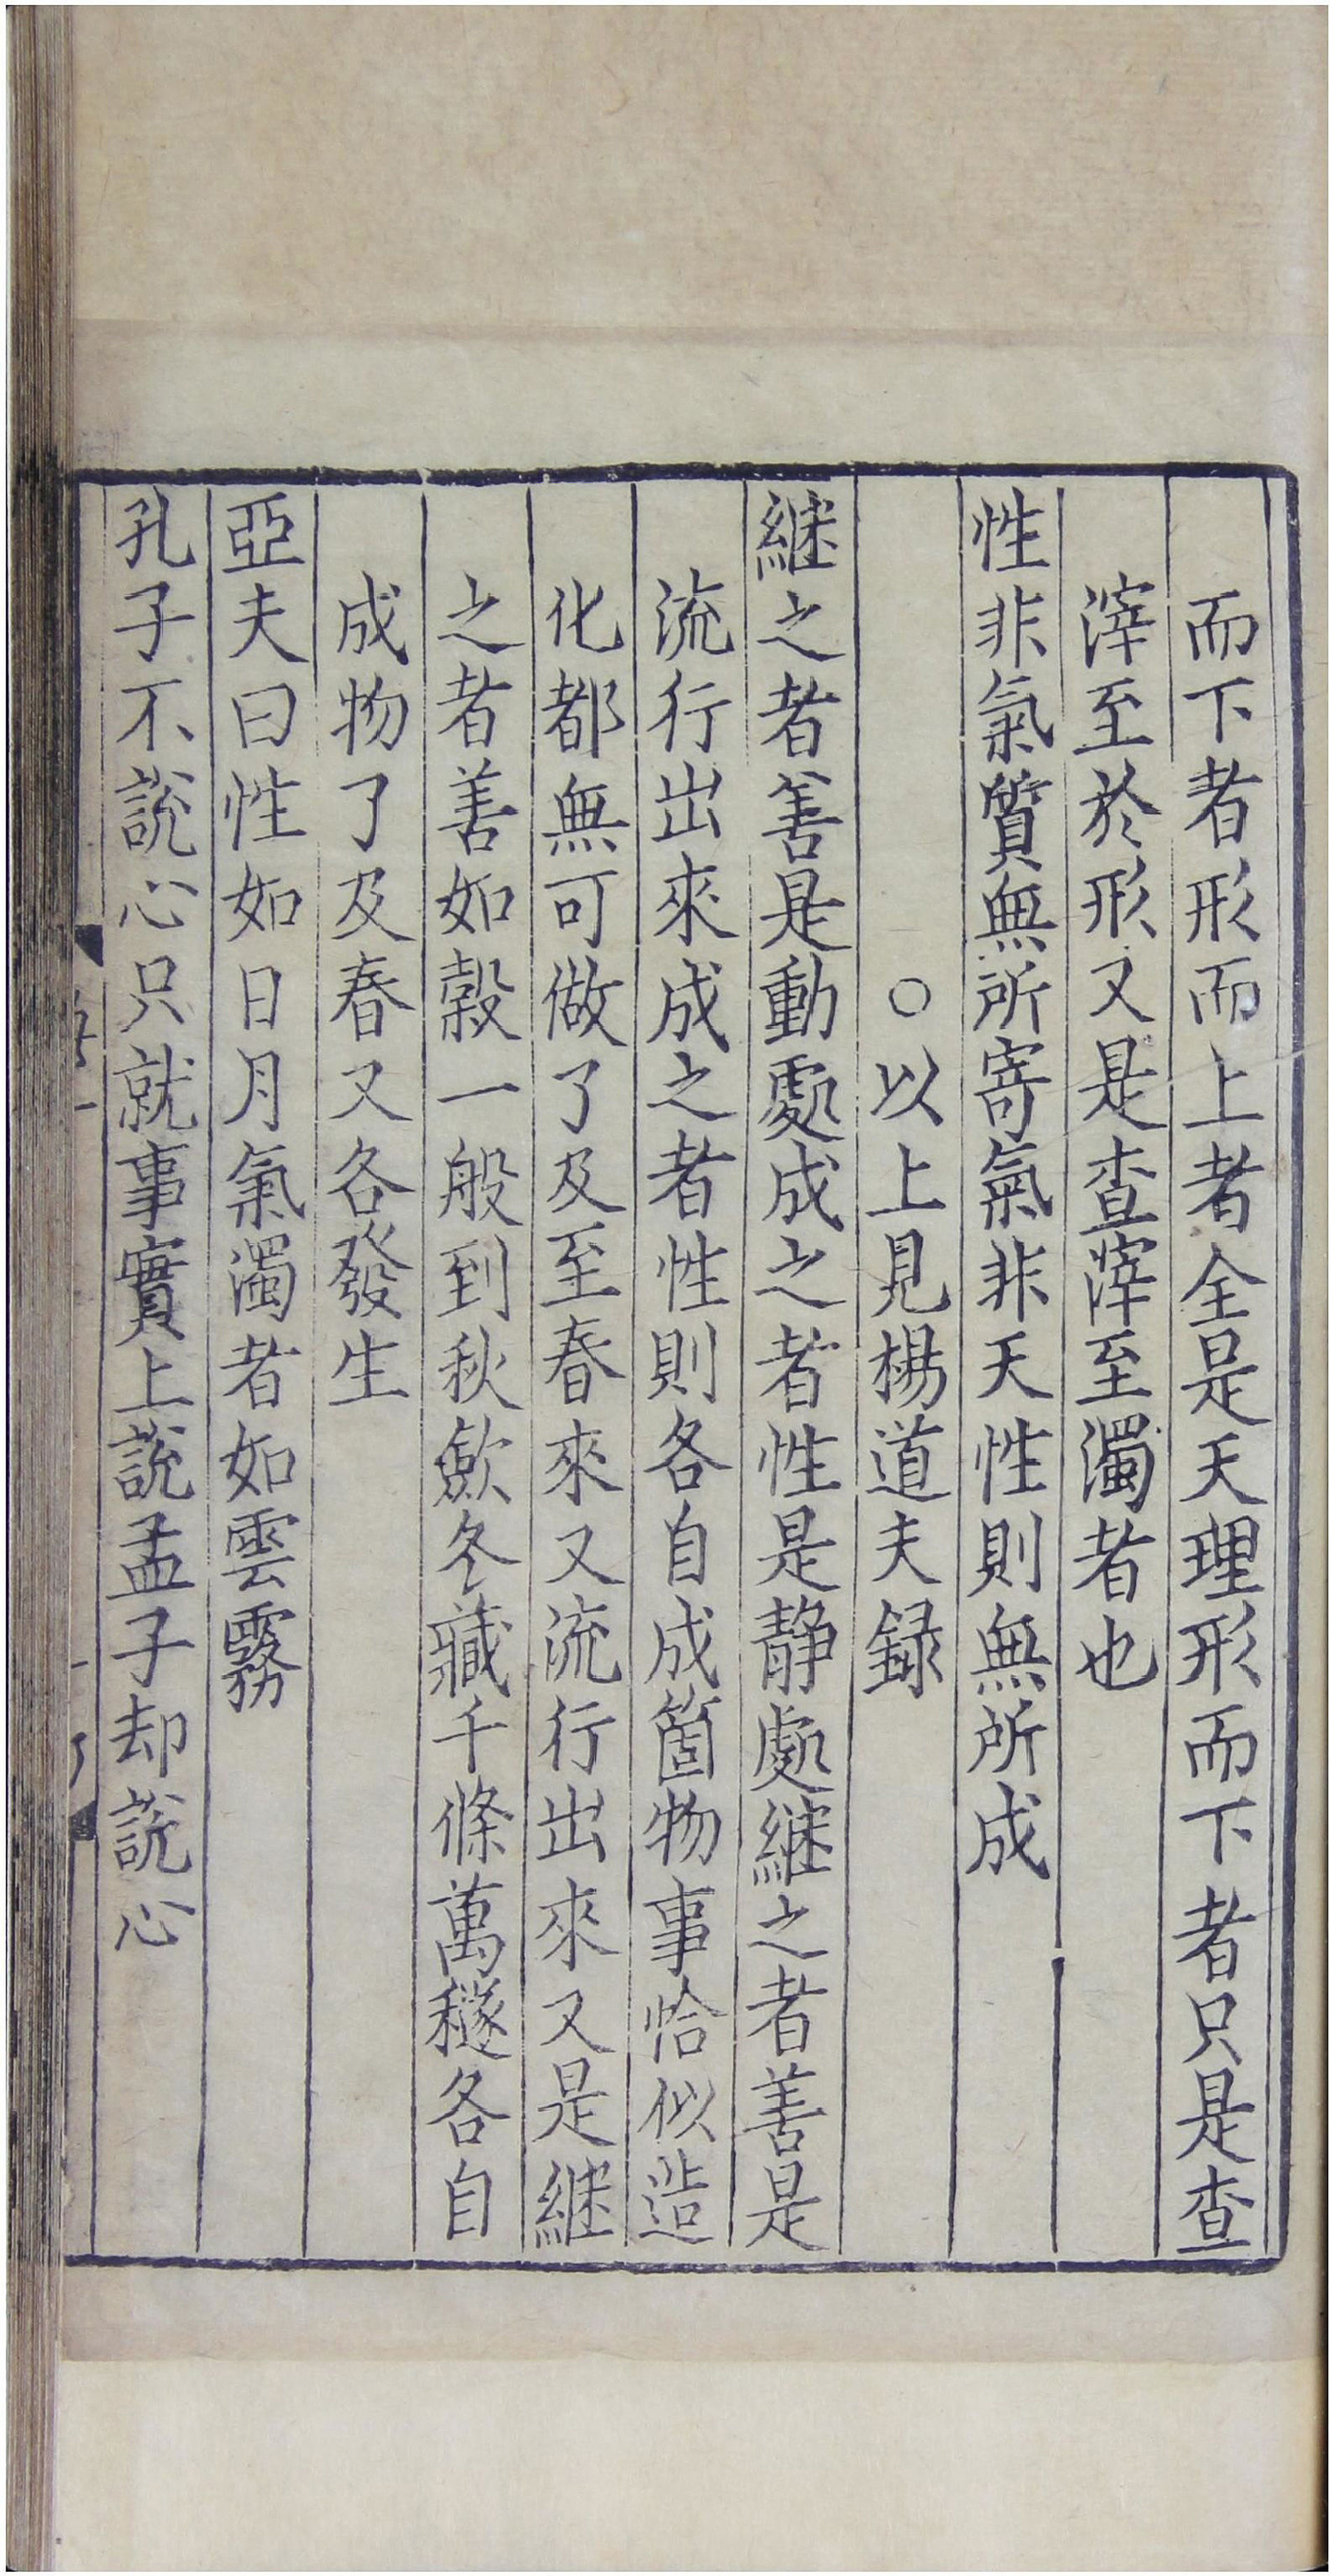 而下者形而上者全是天理形而下者只是查
滓至於形又是查滓至濁者也
性非氣質無所寄氣非天性則無所成
○以上見楊道夫録
継之者善是動處成之者性是静處継之者善是
流行出來成之者性則各自成箇物事恰似造
化都無可做了及至春來又流行出來又是継
之者善如穀一般到秋斂冬藏千條萬穟各自
成物了及春又各發生
亞夫曰性如日月氣濁者如雲霧
孔子不説心只就事實上説孟子却説心